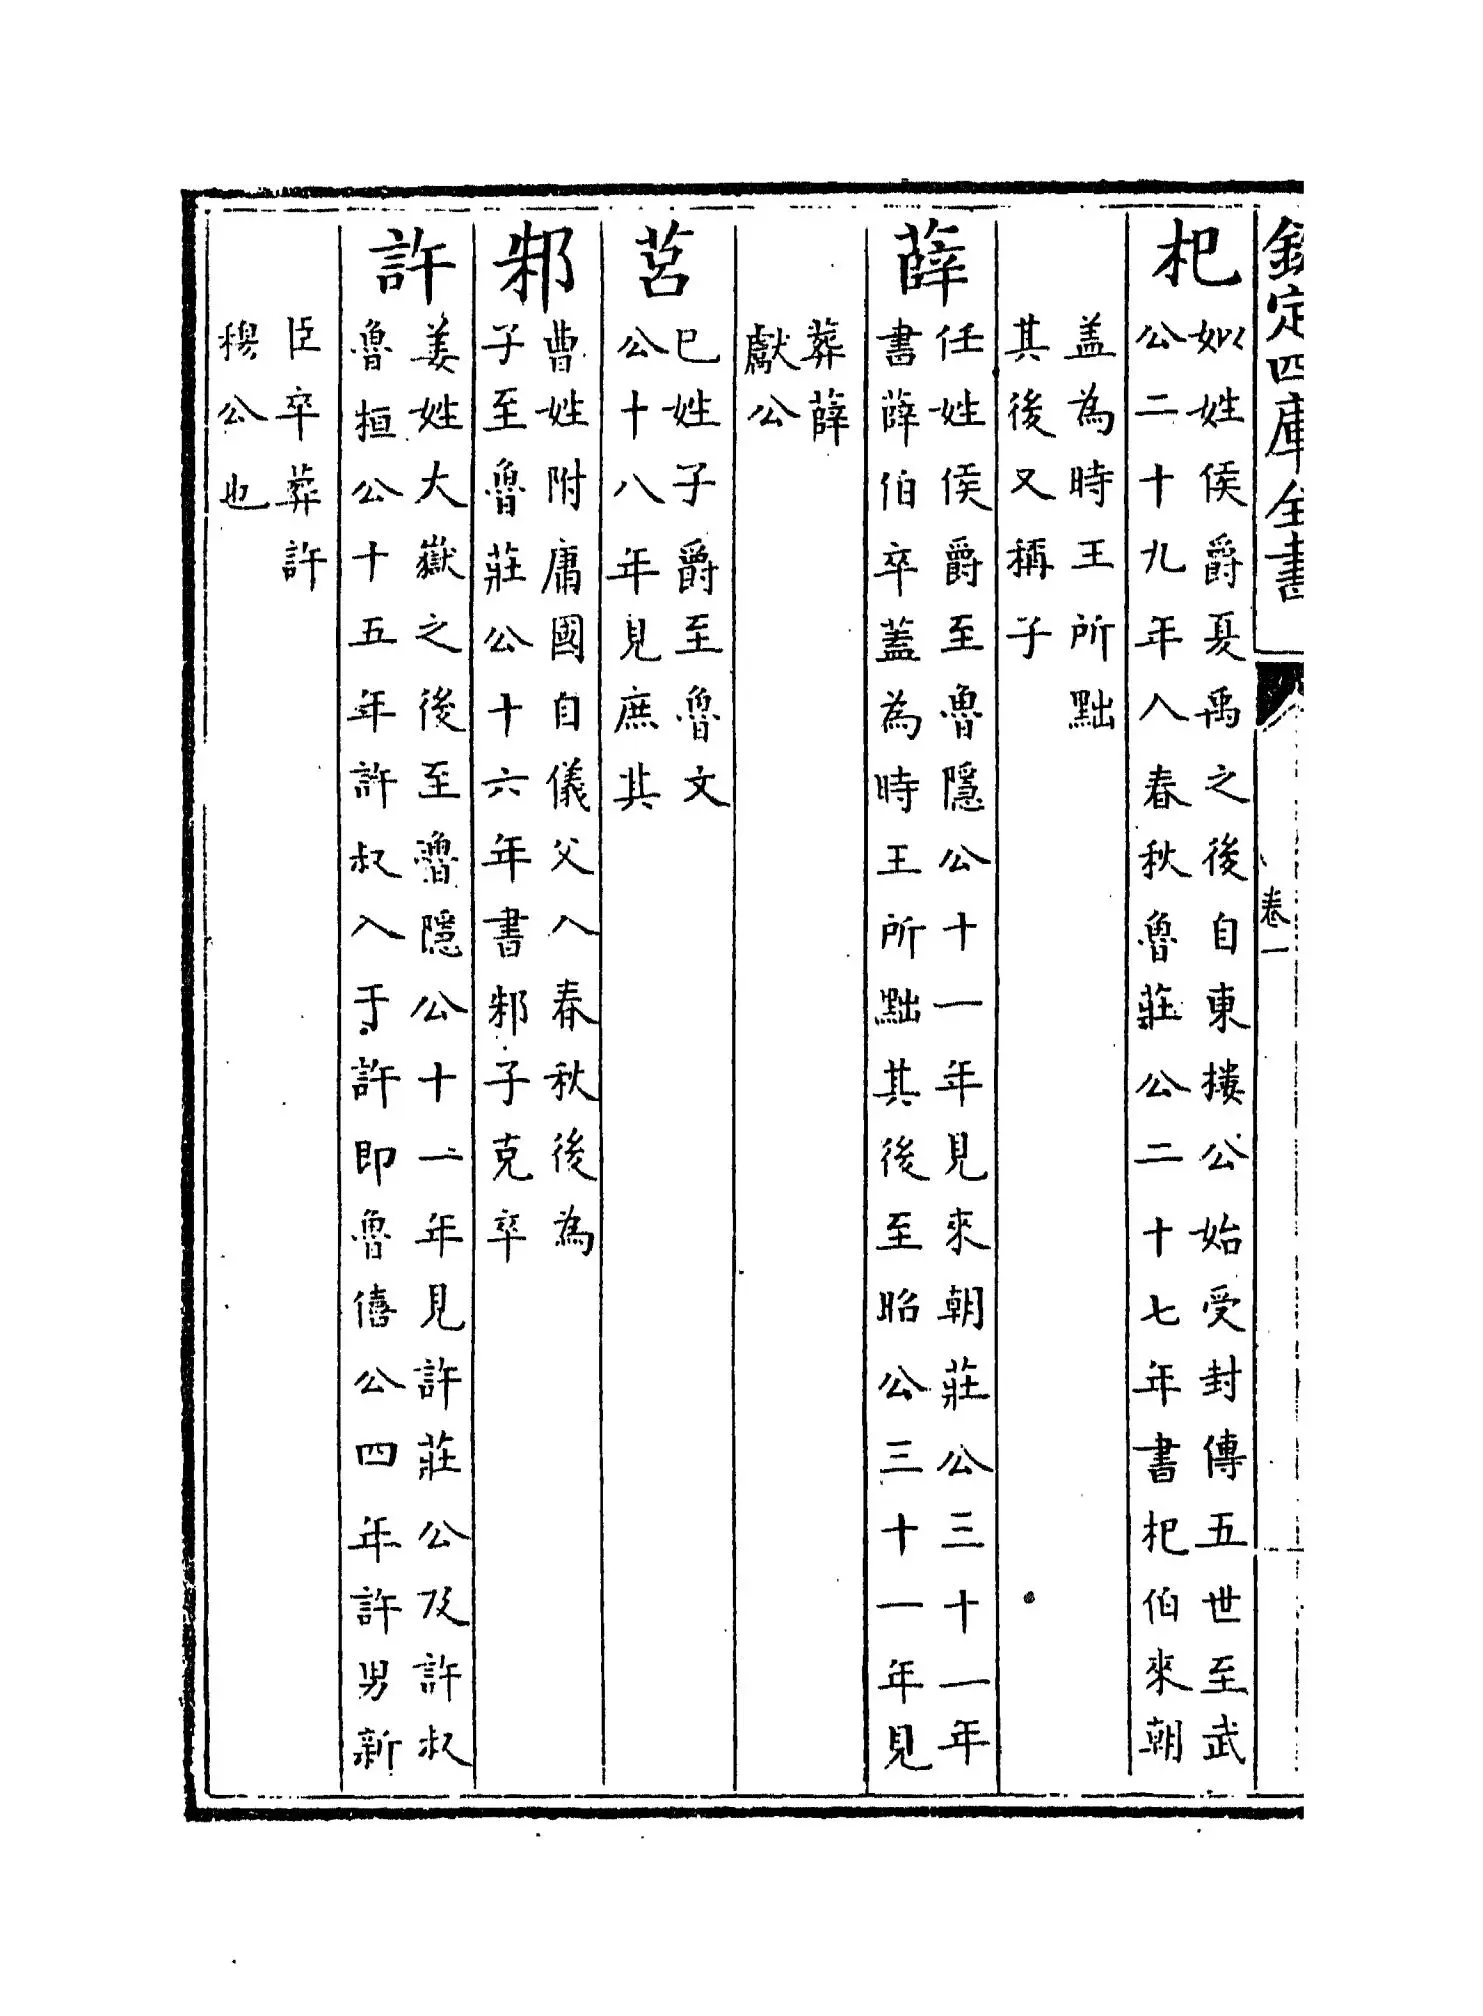 欽定四庫全書
卷一
杞
姒姓侯爵夏禹之後自東樓公始受封傳五世至武
公二十九年入春秋魯莊公二十七年書杞伯來朝
盖為時王所黜
其後又稱子
薛
任姓侯爵至魯隱公十一年見來朝莊公三十一年
書薛伯卒蓋為時王所黜其後至昭公三十一年見
葬薛
獻公
莒
已姓子爵至魯文
公十八年見庶其
邾
曹姓附庸國自儀父入春秋後為
子至魯莊公十六年書邾子克卒
許
姜姓大嶽之後至魯隱公十一年見許莊公及許叔
魯桓公十五年許叔入于許即魯僖公四年許男新
臣卒葬許
穆公也